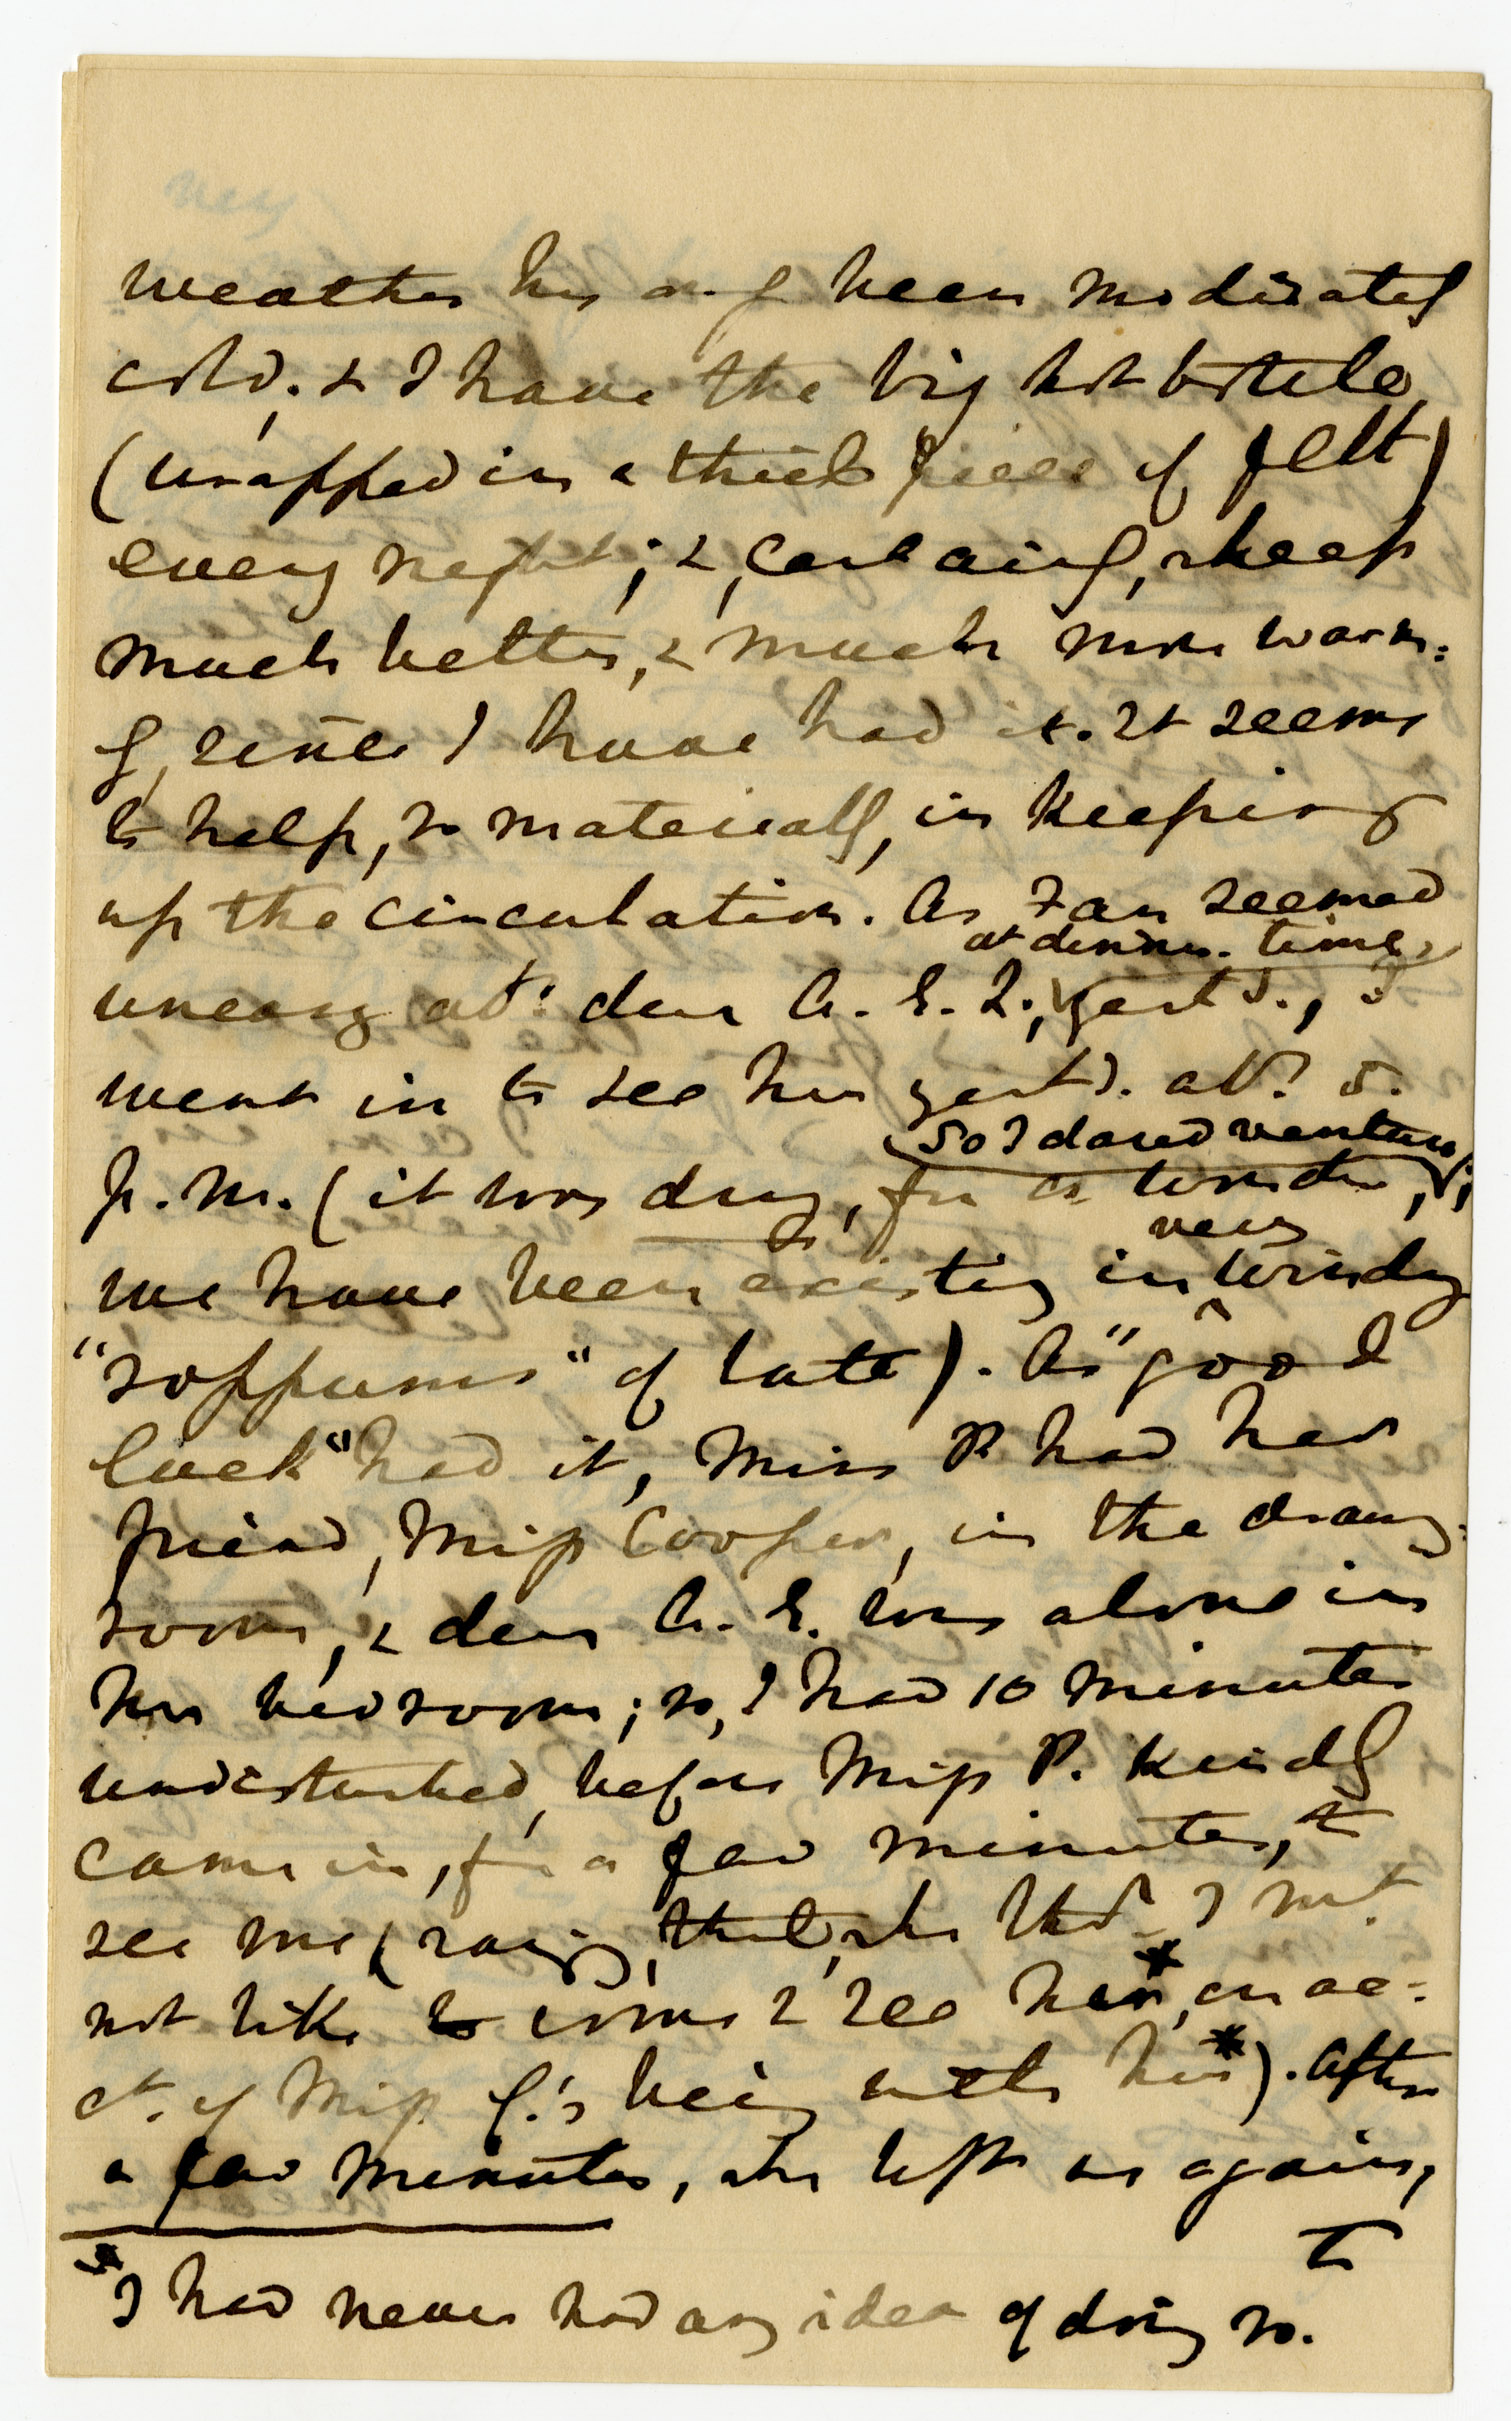 weather has only been moderately
cold, & I have the big hot bottle
(wrapped in a thick piece of felt)
every night; &, certainly, sleep
much better, & much more warm:
ly, since I have had it. It seems
to help, so materially, in keeping
up the circulation. As Fan seemed
at dinner-time,
uneasy abt. dear A. E. L., yestd., I
went in to see her yestd. abt. 5.
(so I dared venture);
p.m. (it was dry, for a wonder,
very
we have been existing in windy
"soppums" of late). As "good
luck" had it, Miss P. had her
friend, Miss Cooper, in the drawg:
room, & dear A. E. was alone in
her bedroom; so, I had 10 minutes
undisturbed, before Miss P. kindly
came in, for a few minutes, to
see me (saying, that, she thot. I mt.
not like to come & see her*, on ac=
ct. of Miss C.'s being with her*). After
a few minutes, she left us again,
to
*I had never had any idea of doing so.